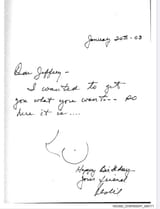 January 20th - 03
Dear Jeffrey -
I wanted to get
you what you want... so
here it is....
Happy Birthday
your friend